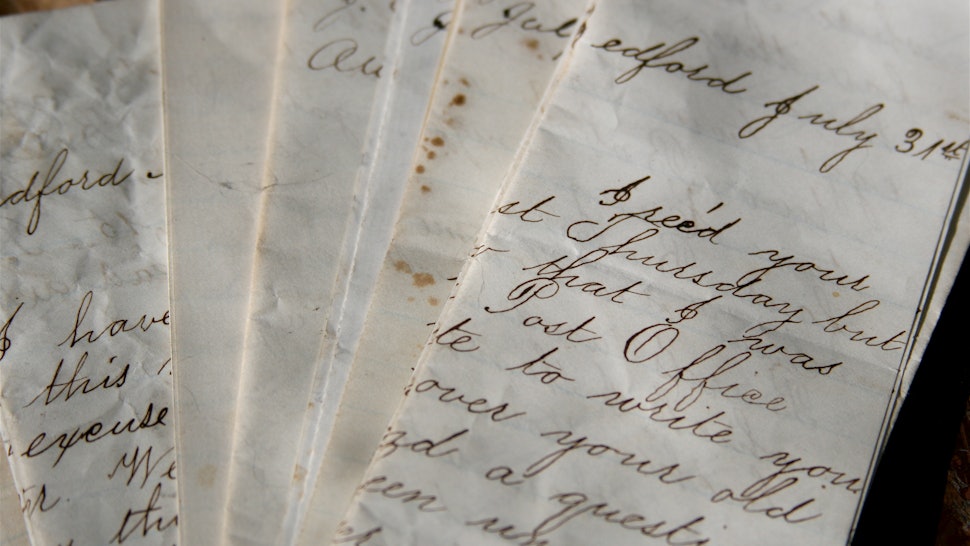 dford
I have
this
excuse
We
Au
Jul
edford July 31st
I rec'd your
st Thursday but
that I was
Post Office
te to write you
over your old
a questi
een